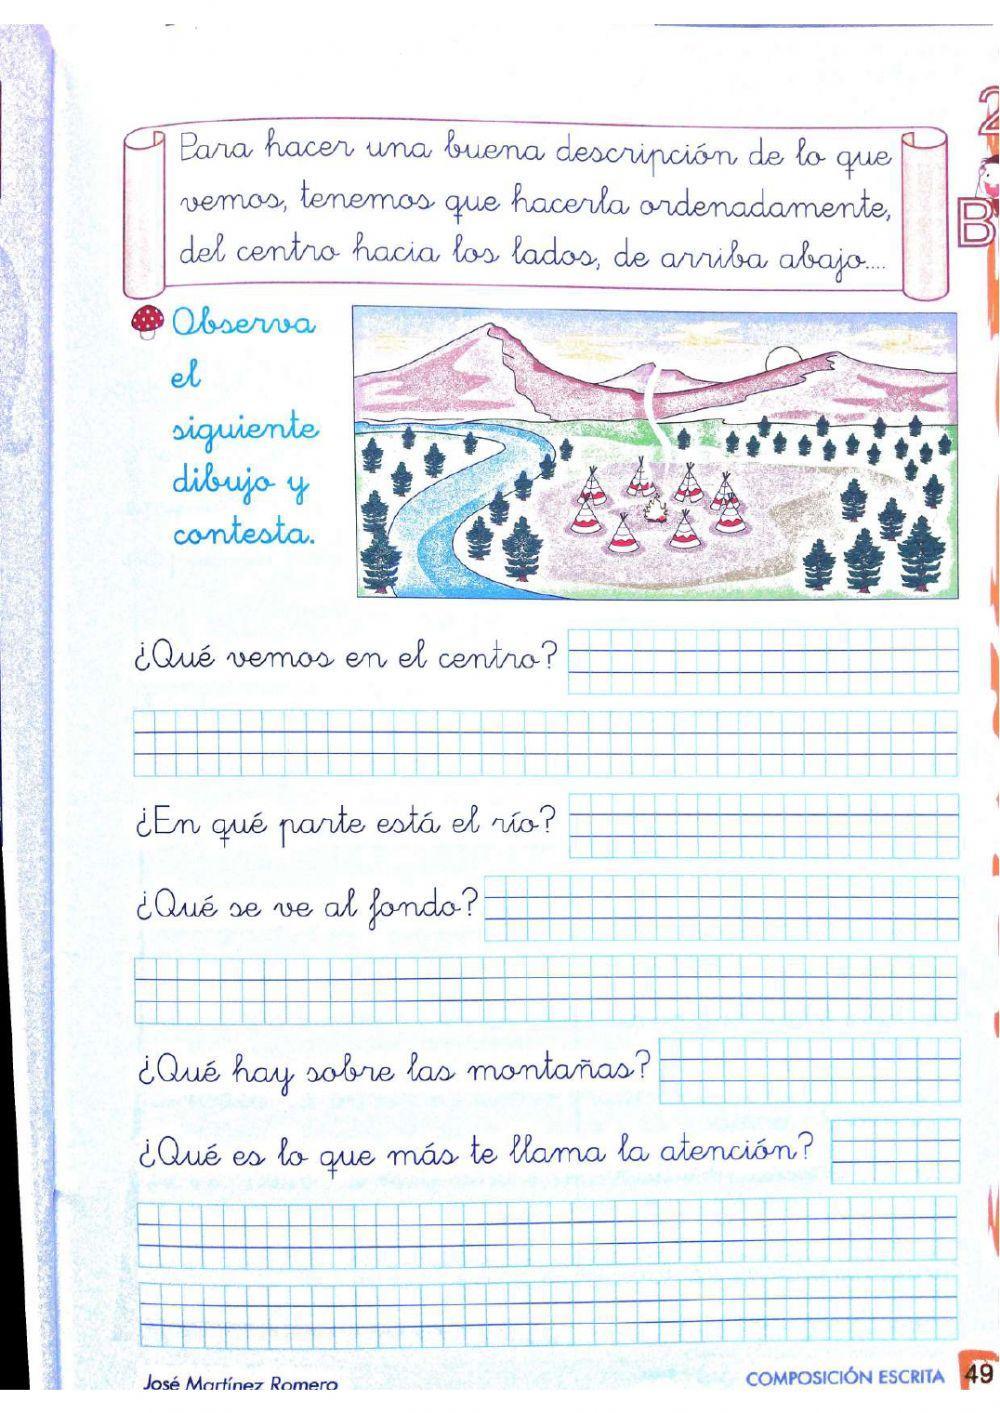 Para hacer una buena descripción de lo que
vemos, tenemos que hacerla ordenadamente,
del centro hacia los lados, de arriba abajo....
Observa
el
siguiente
dibujo y
contesta.
¿Qué vemos en el centro?
¿En qué parte está el río?
¿Qué se ve al fondo?
¿Qué hay sobre las montañas?
¿Qué es lo que más te llama la atención?
José Martínez Romero
COMPOSICIÓN ESCRITA 49
2
B